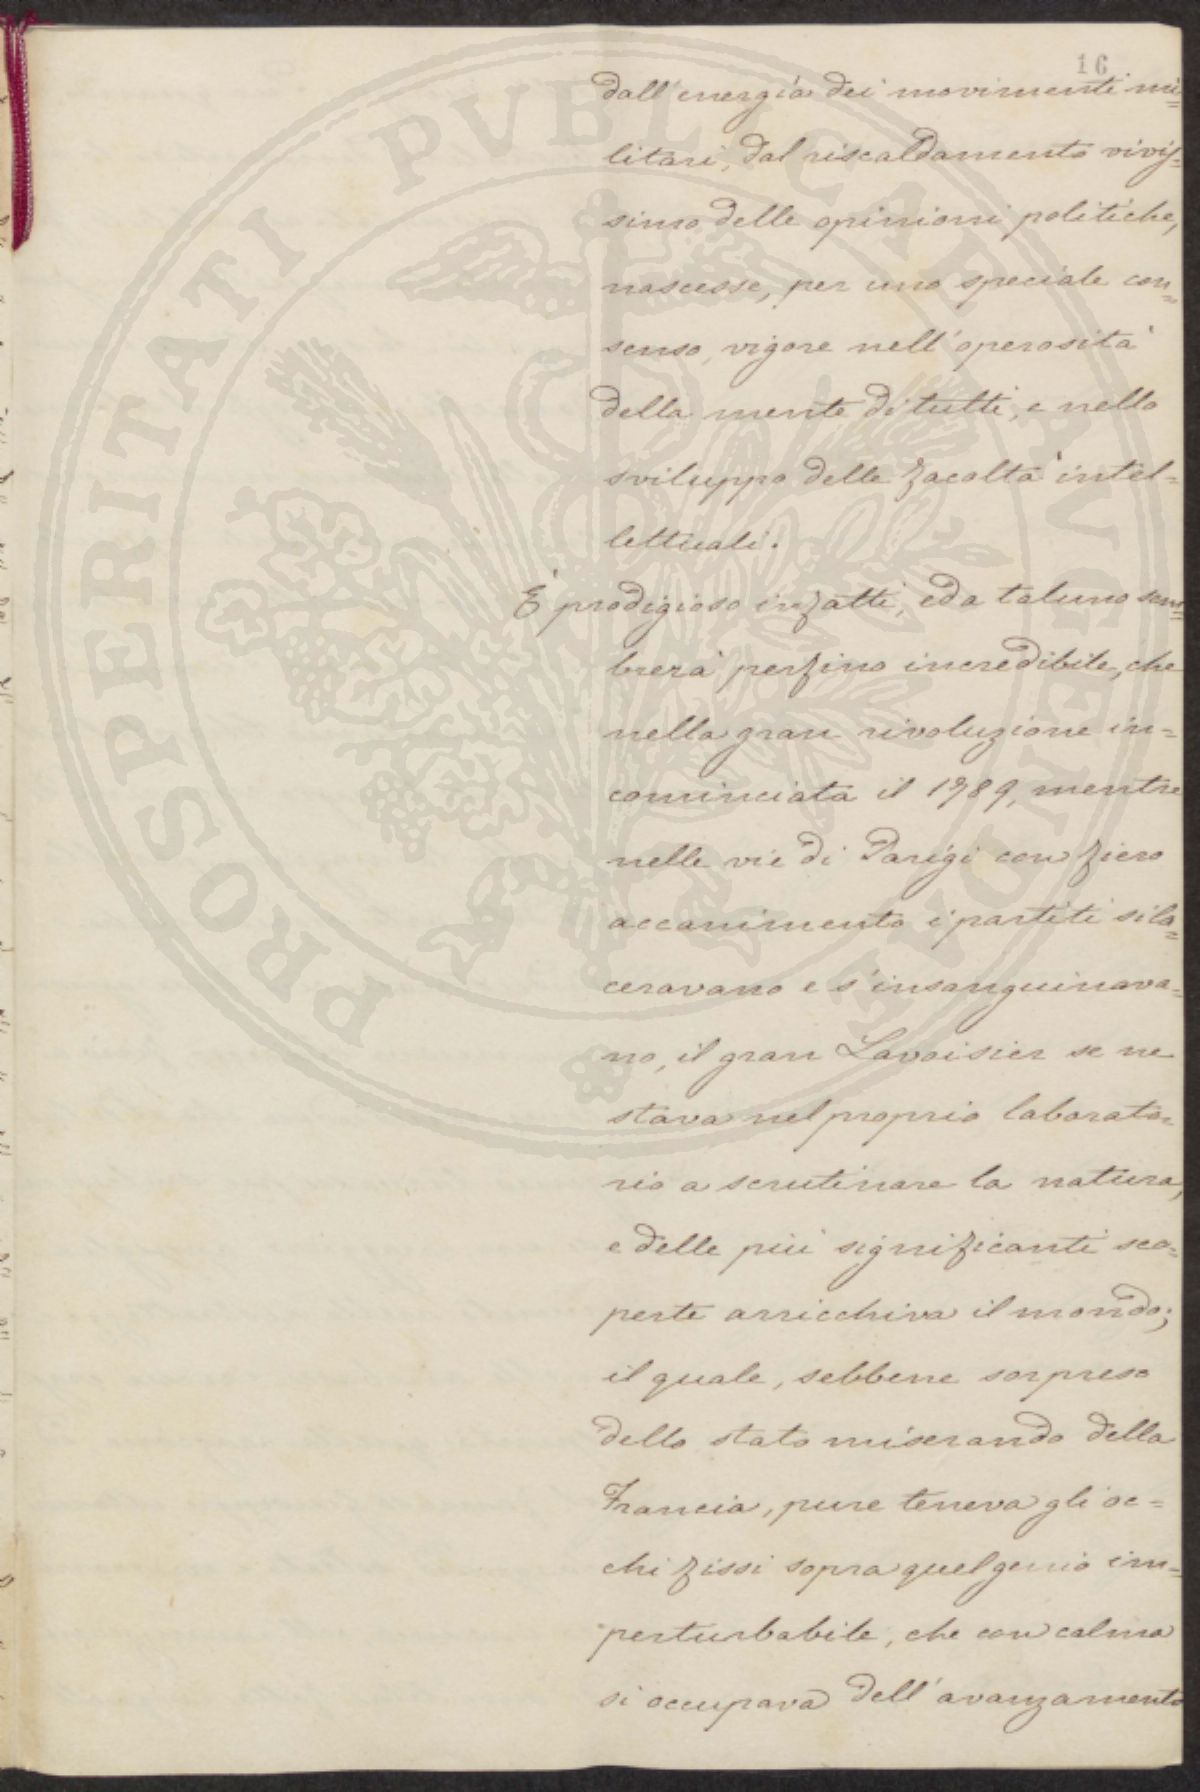 16
dall'energia dei movimenti mi=
litari, dal riscaldamento vivis=
simo delle opinioni politiche,
nascesse, per uno speciale con=
senso, vigore nell'operosità
della mente di tutti, e nello
sviluppo delle facoltà intel=
lettuali.
È prodigioso infatti, ed a taluno sem=
brerà perfino incredibile, che
nella gran rivoluzione in=
cominciata il 1789, mentre
nelle vie di Parigi con fiero
accanimento i partiti si la=
ceravano e s'insanguinava=
no, il gran Lavoisier se ne
stava nel proprio laborato=
rio a scrutinare la natura,
e delle più significanti sco=
perte arricchiva il mondo;
il quale, sebbene sorpreso
dello stato miserando della
Francia, pure teneva gli oc=
chi fissi sopra quel genio im=
perturbabile, che con calma
si occupava dell'avanzamento
PROSPERITATI PVBLICAE AVGENDAE